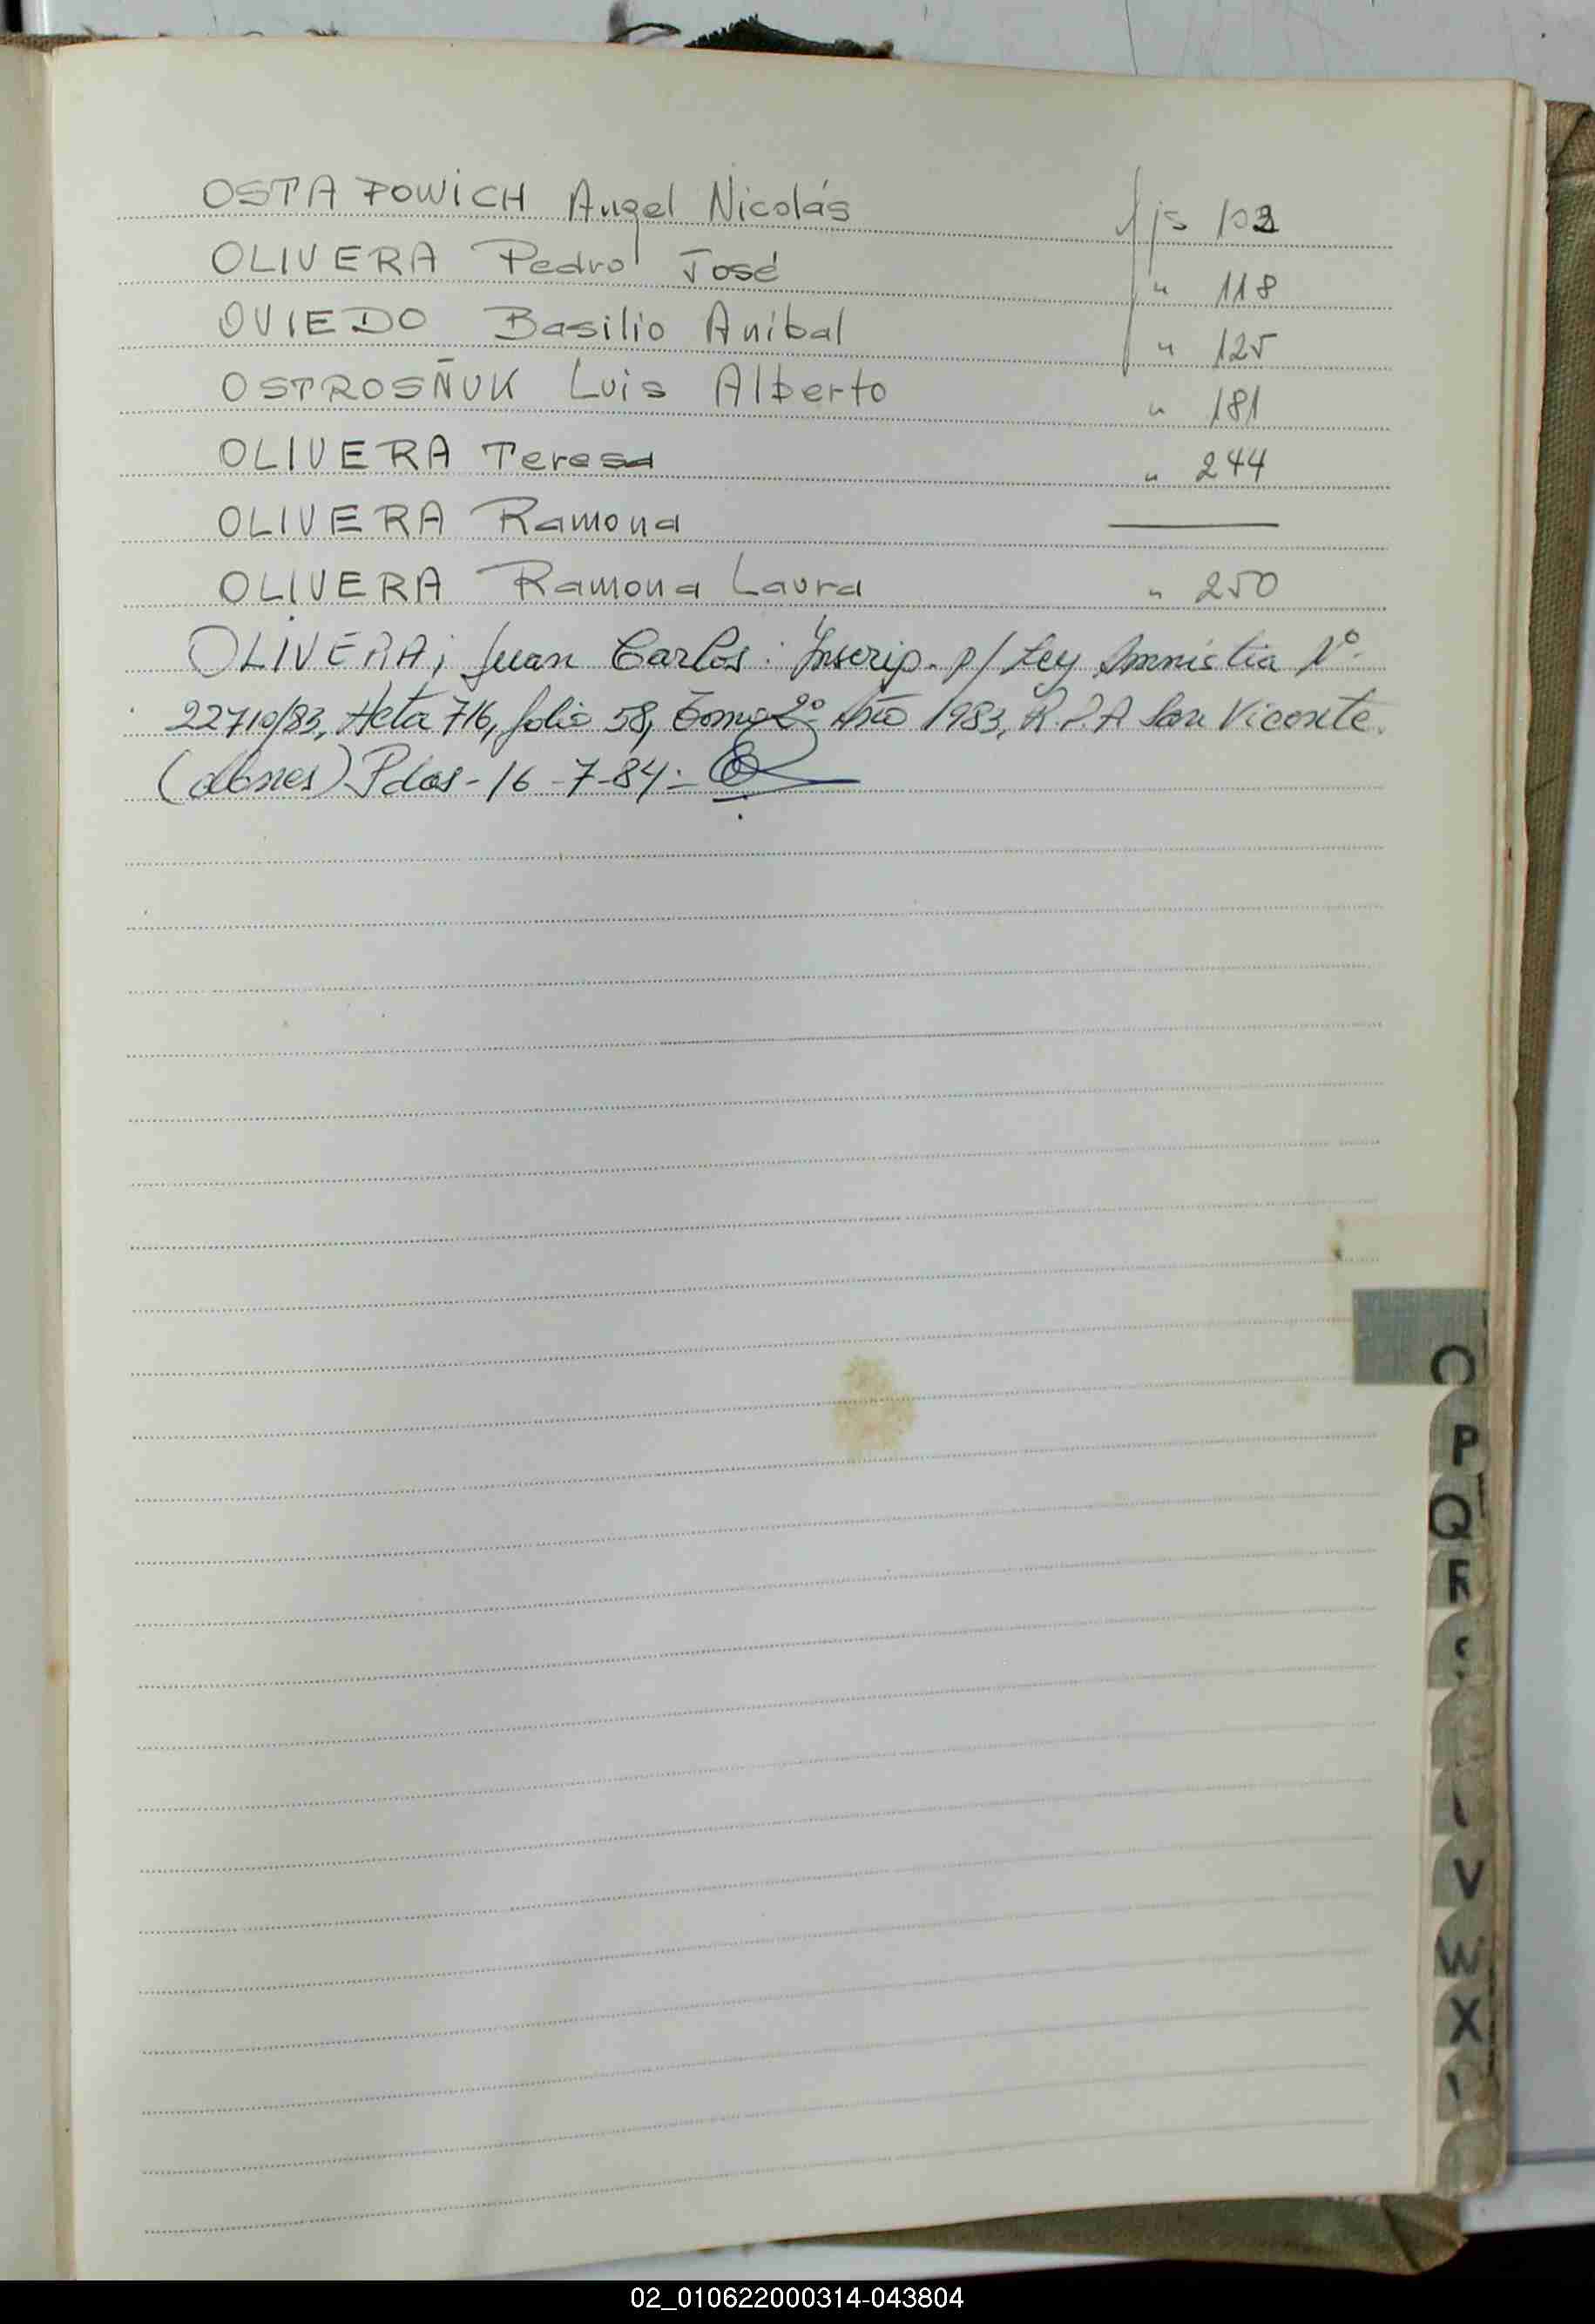 OSTAPOWICH Angel Nicolás fjs 103
OLIVERA Pedro José " 118
OVIEDO Basilio Aníbal " 125
OSTROSÑUK Luis Alberto " 181
OLIVERA Teresa " 244
OLIVERA Ramona ——
OLIVERA Ramona Laura " 250
OLIVERA, Juan Carlos: Inscrip. p/ Ley Amnistia Nº
22710/83, Acta 716, folio 58, Tomo 2º Año 1983, R.P.A San Vicente.
Pdas - 16-7-84 =
O
P
Q
R
S
V
W
X
02_010622000314-043804